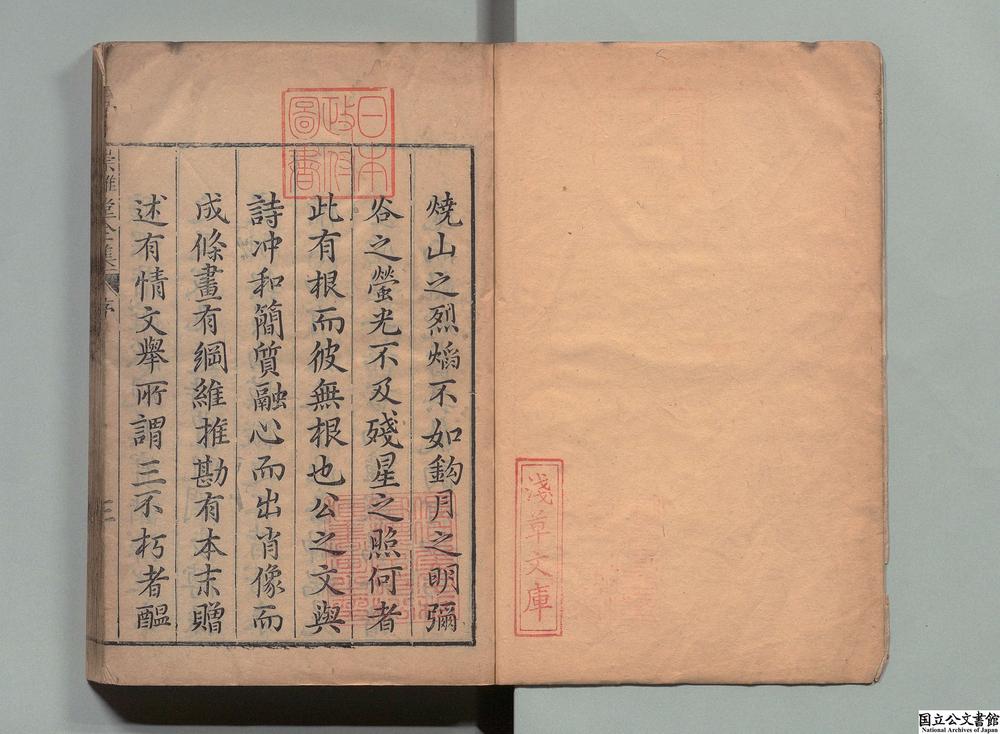 淺草文庫
日本
政府
圖書
燒山之烈熖不如鈎月之明彌
谷之螢光不及殘星之照何者
此有根而彼無根也公之文與
詩冲和簡質融心而出肖像而
成條畫有綱維推勘有本末贈
述有情文舉所謂三不朽者醖
崇雅堂全集
序
三
国立公文書館
National Archives of Japan